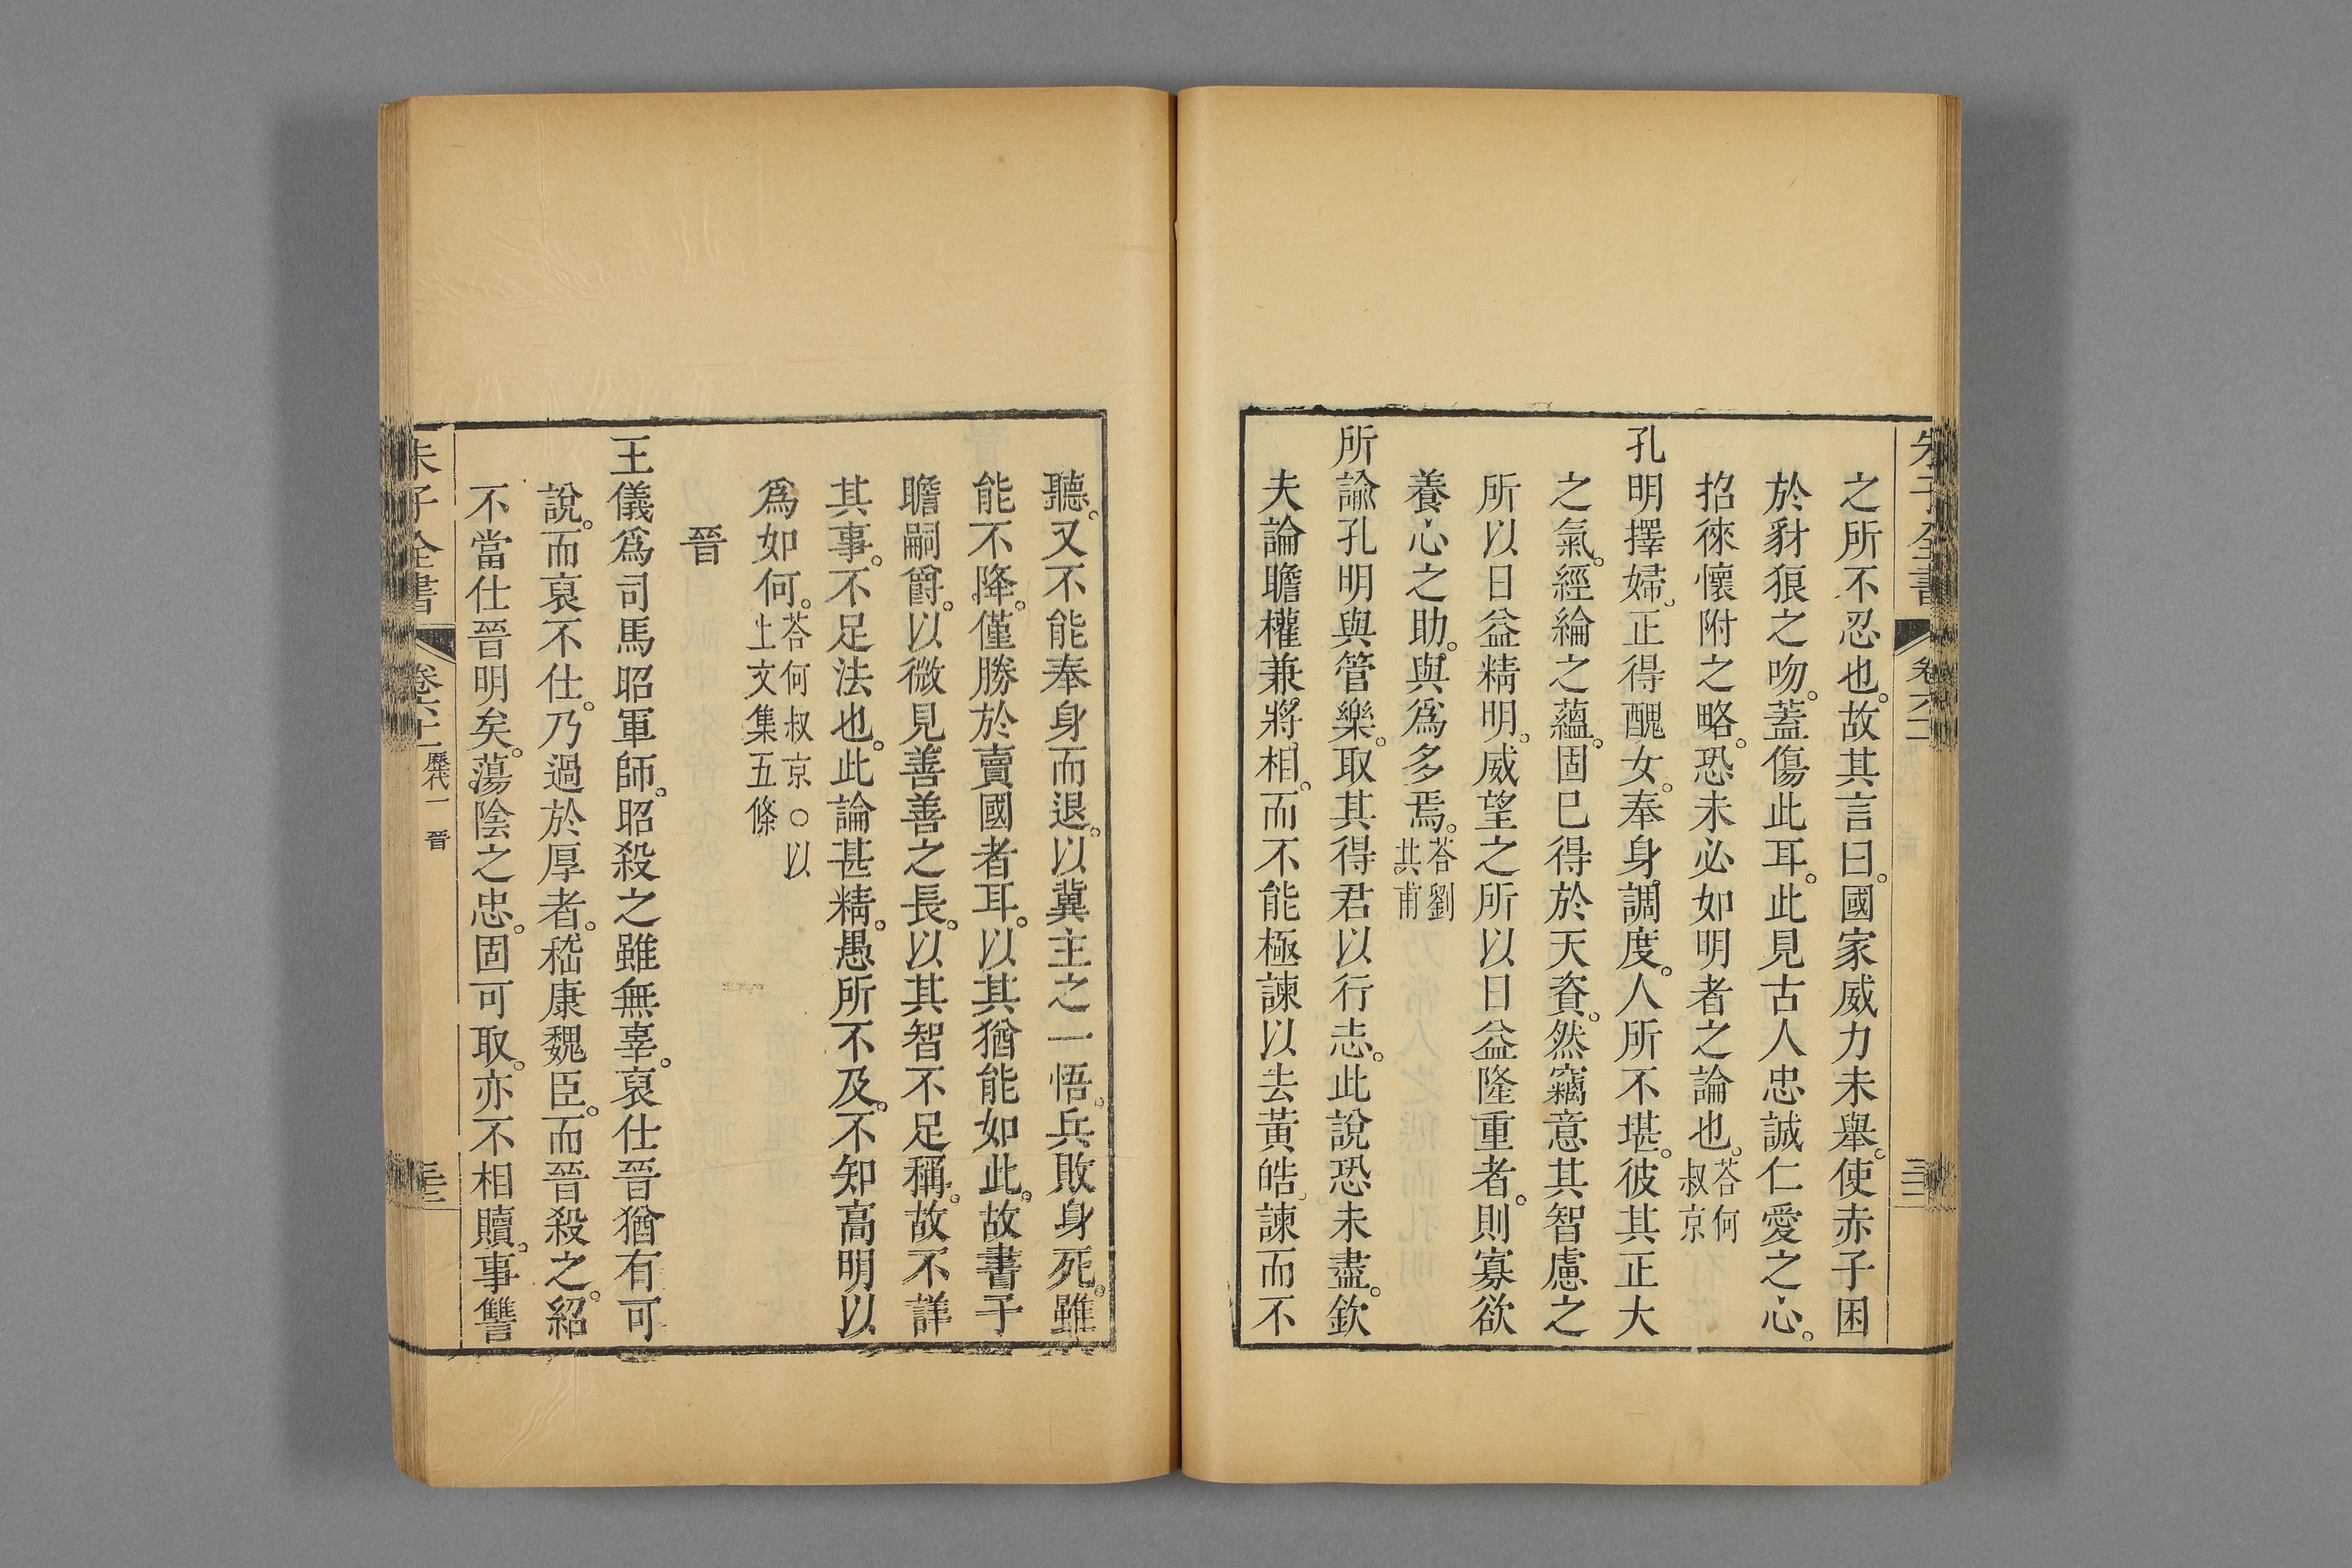 朱子全書
卷六十一
之所不忍也。故其言曰。國家威力未舉。使赤子困
於豺狼之吻。蓋傷此耳。此見古人忠誠仁愛之心。
招徠懷附之略。恐未必如明者之論也。荅何
叔京
孔明擇婦。正得醜女。奉身調度。人所不堪。彼其正大
之氣。經綸之蘊。固已得於天資。然竊意其智慮之
所以日益精明。威望之所以日益隆重者。則寡欲
養心之助。與爲多焉。荅劉
其甫
所諭孔明與管樂。取其得君以行志。此說恐未盡。欽
夫論瞻權兼將相。而不能極諫以去黃皓。諫而不
聽。又不能奉身而退。以冀主之一悟。兵敗身死。雖
能不降。僅勝於賣國者耳。以其猶能如此。故書子
瞻嗣爵。以微見善善之長。以其智不足稱。故不詳
其事。不足法也。此論甚精。愚所不及。不知高明以
爲如何。荅何叔京○以
上文集五條
晉
王儀爲司馬昭軍師。昭殺之雖無辜。裒仕晉猶有可
說。而裒不仕。乃過於厚者。嵇康魏臣。而晉殺之。紹
不當仕晉明矣。蕩陰之忠。固可取。亦不相贖。事讐
朱子全書
卷六十一
歷代一 晉